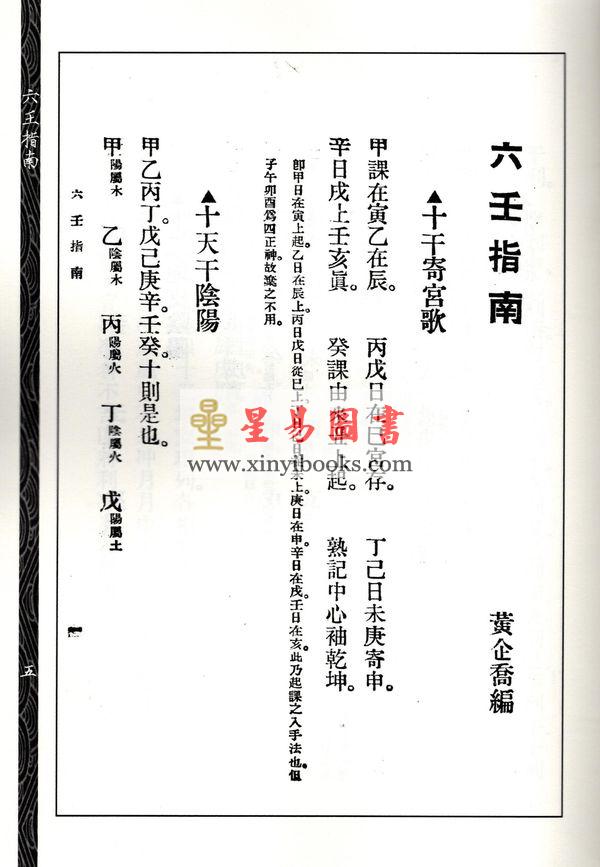 六壬指南
黃企喬編
▲十干寄宮歌
甲課在寅乙在辰。 丙戊日在巳宮存。 丁己日未庚寄申。
辛日戌上壬亥眞。 癸課由來丑上起。 熟記中心袖乾坤。
卽甲日在寅上起。乙日在辰上。丙日戊日從巳上 日 日 未上。庚日在申。辛日在戌。壬日在亥。此乃起課之入手法也。但
子午卯酉爲四正神。故棄之不用。
▲十天干陰陽
甲乙丙丁戊己庚辛。壬癸。十則是也。
甲陽屬木 乙陰屬木 丙陽屬火 丁陰屬火 戊陽屬土
六壬指南
一
六壬指南
五
星易圖書
www.xinyibooks.com